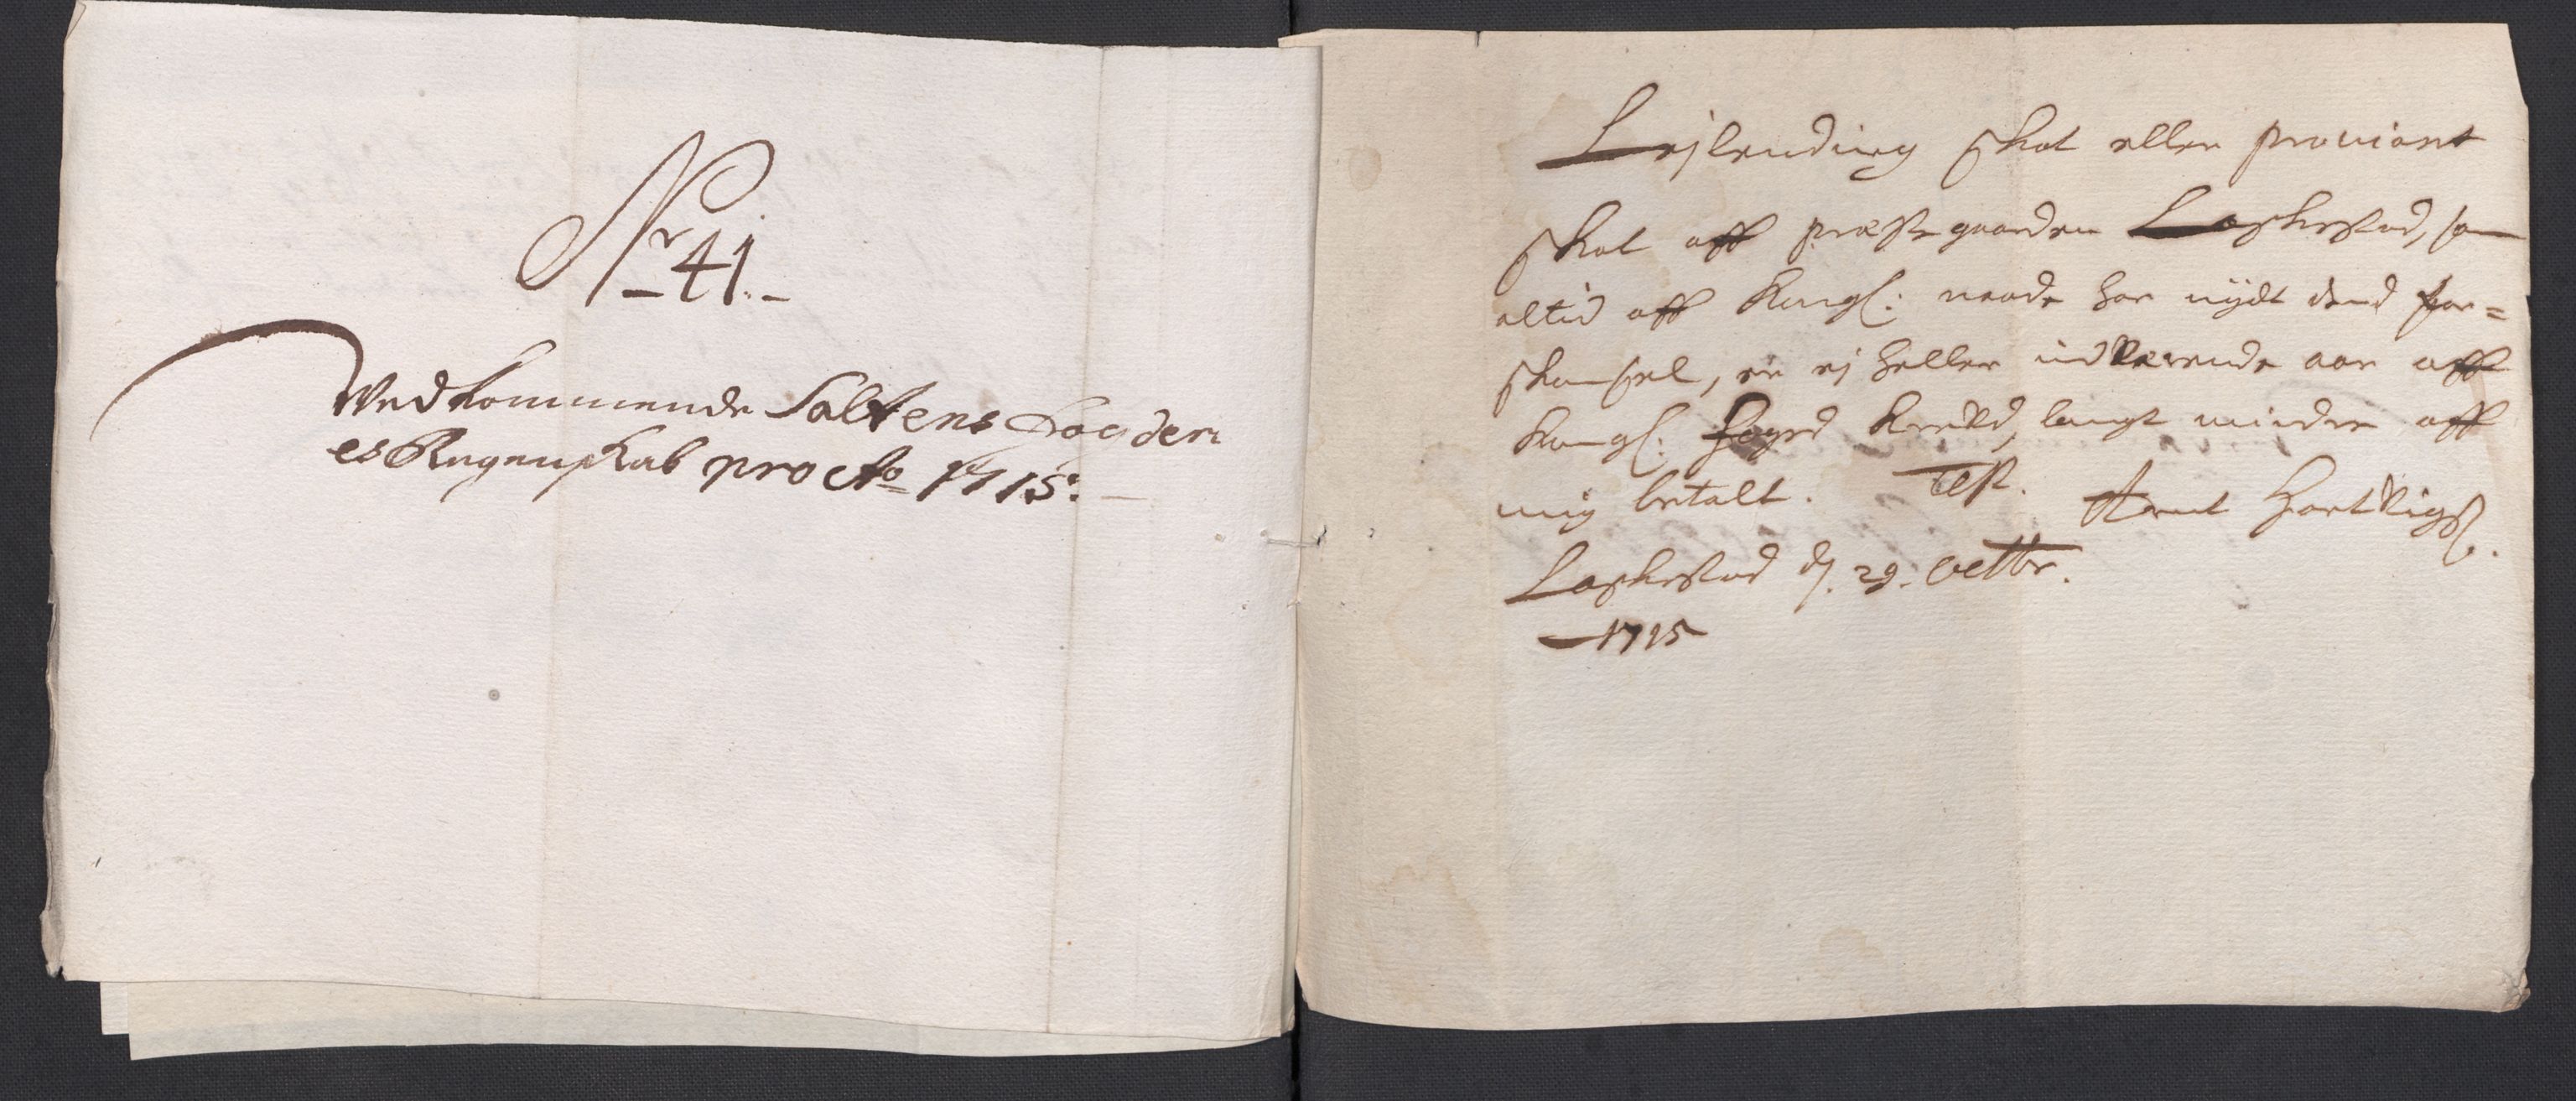 Nr 41.
Vedkommende Saltens Fogderi
es Regenskab pro Ao 1715:
Lejlending skat eller proviant
skat aff præstegaarden Laskestad, som
altid aff Kongl: naade har nÿdt dend for=
skaansel, er ej heller indværende aar aff
Kongl: foged krævd, langt mindre aff
mig betalt. Test. Arent Hartvigs.
Laskestad d. 29. octbr.
1715